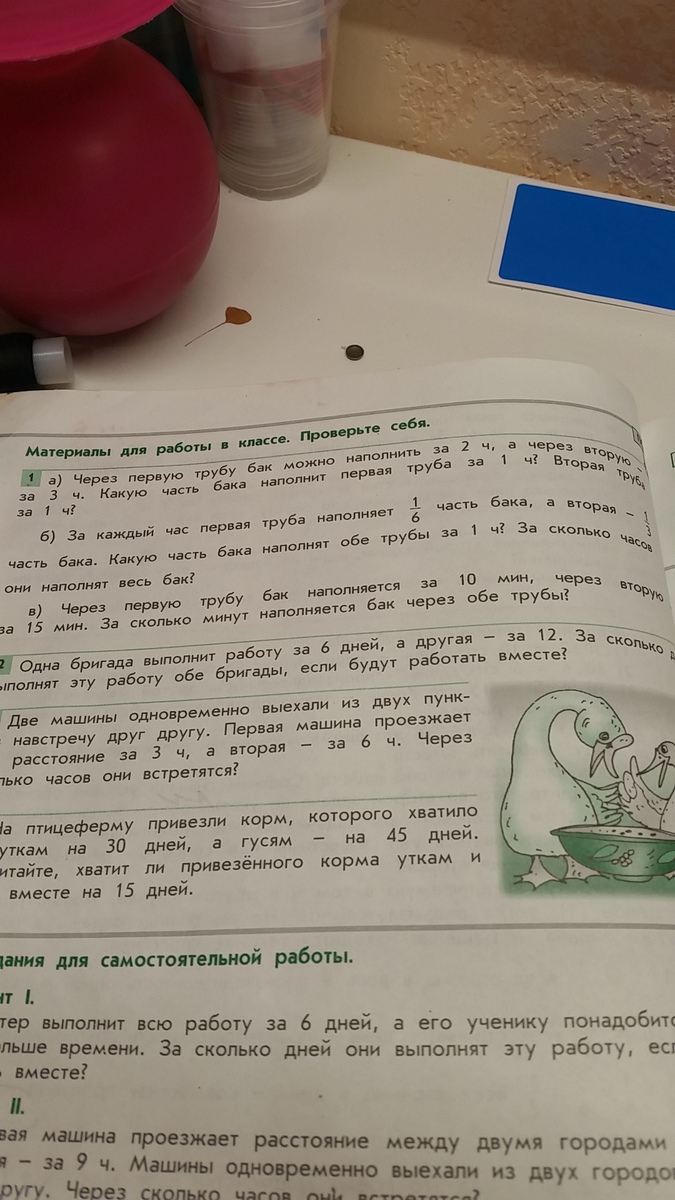 Материалы для работы в классе. Проверьте себя.
1 а) Через первую трубу бак можно наполнить за 2 ч, а через вторую –
за 3 ч. Какую часть бака наполнит первая труба за 1 ч? Вторая труба
за 1 ч?
б) За каждый час первая труба наполняет 1/6 часть бака, а вторая – 1/3
часть бака. Какую часть бака наполнят обе трубы за 1 ч? За сколько часов
они наполнят весь бак?
в) Через первую трубу бак наполняется за 10 мин, через вторую
за 15 мин. За сколько минут наполняется бак через обе трубы?
2 Одна бригада выполнит работу за 6 дней, а другая – за 12. За сколько
эту работу обе бригады, если будут работать вместе?
Две машины одновременно выехали из двух пунк-
навстречу друг другу. Первая машина проезжает
расстояние за 3 ч, а вторая – за 6 ч. Через
часов они встретятся?
птицеферму привезли корм, которого хватило
уткам на 30 дней, а гусям – на 45 дней.
хватит ли привезённого корма уткам и
вместе на 15 дней.
для самостоятельной работы.
I.
выполнит всю работу за 6 дней, а его ученику
времени. За сколько дней они выполнят эту работу,
вместе?
II.
машина проезжает расстояние между двумя городами
– за 9 ч. Машины одновременно выехали из двух
Через сколько часов они встретятся?